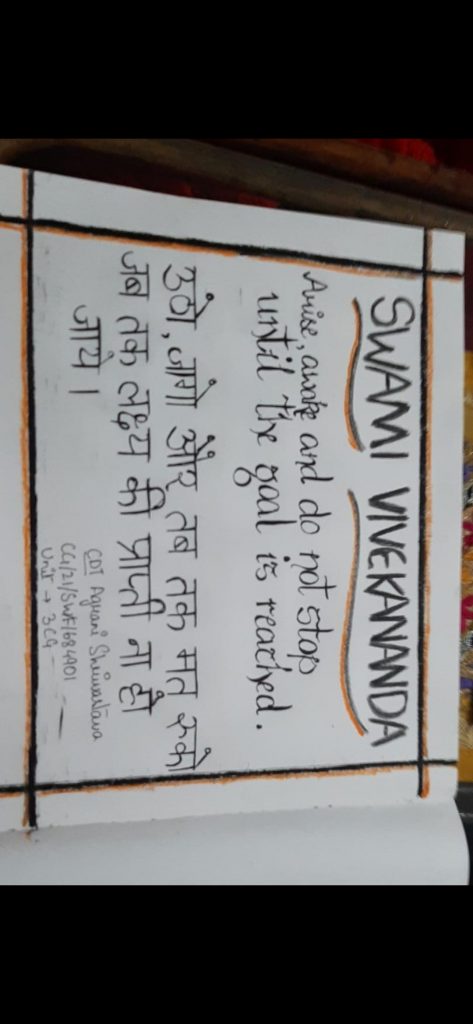 SWAMI VIVEKANANDA
Arise, awake and do not stop
until the goal is reached.
उठो, जागो और तब तक मत रुको
जब तक लक्ष्य की प्राप्ती ना हो
जाये।
CDT Agrani Shrivastava
CG/21/SWF/684901
Unit → 3CG